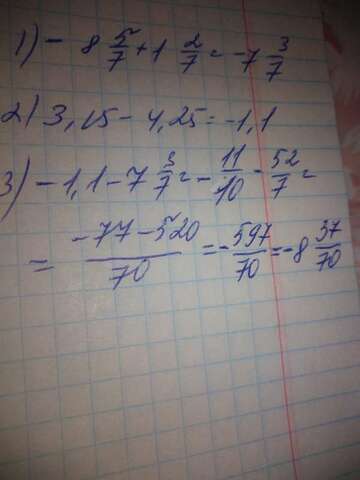 1) - 8 5/7 + 1 2/7 = - 7 3/7
2) 3,15 - 4,25 = - 1,1
3) - 1,1 - 7 3/7 = - 11/10 - 52/7 =
= (- 77 - 520)/70 = - 597/70 = - 8 37/70